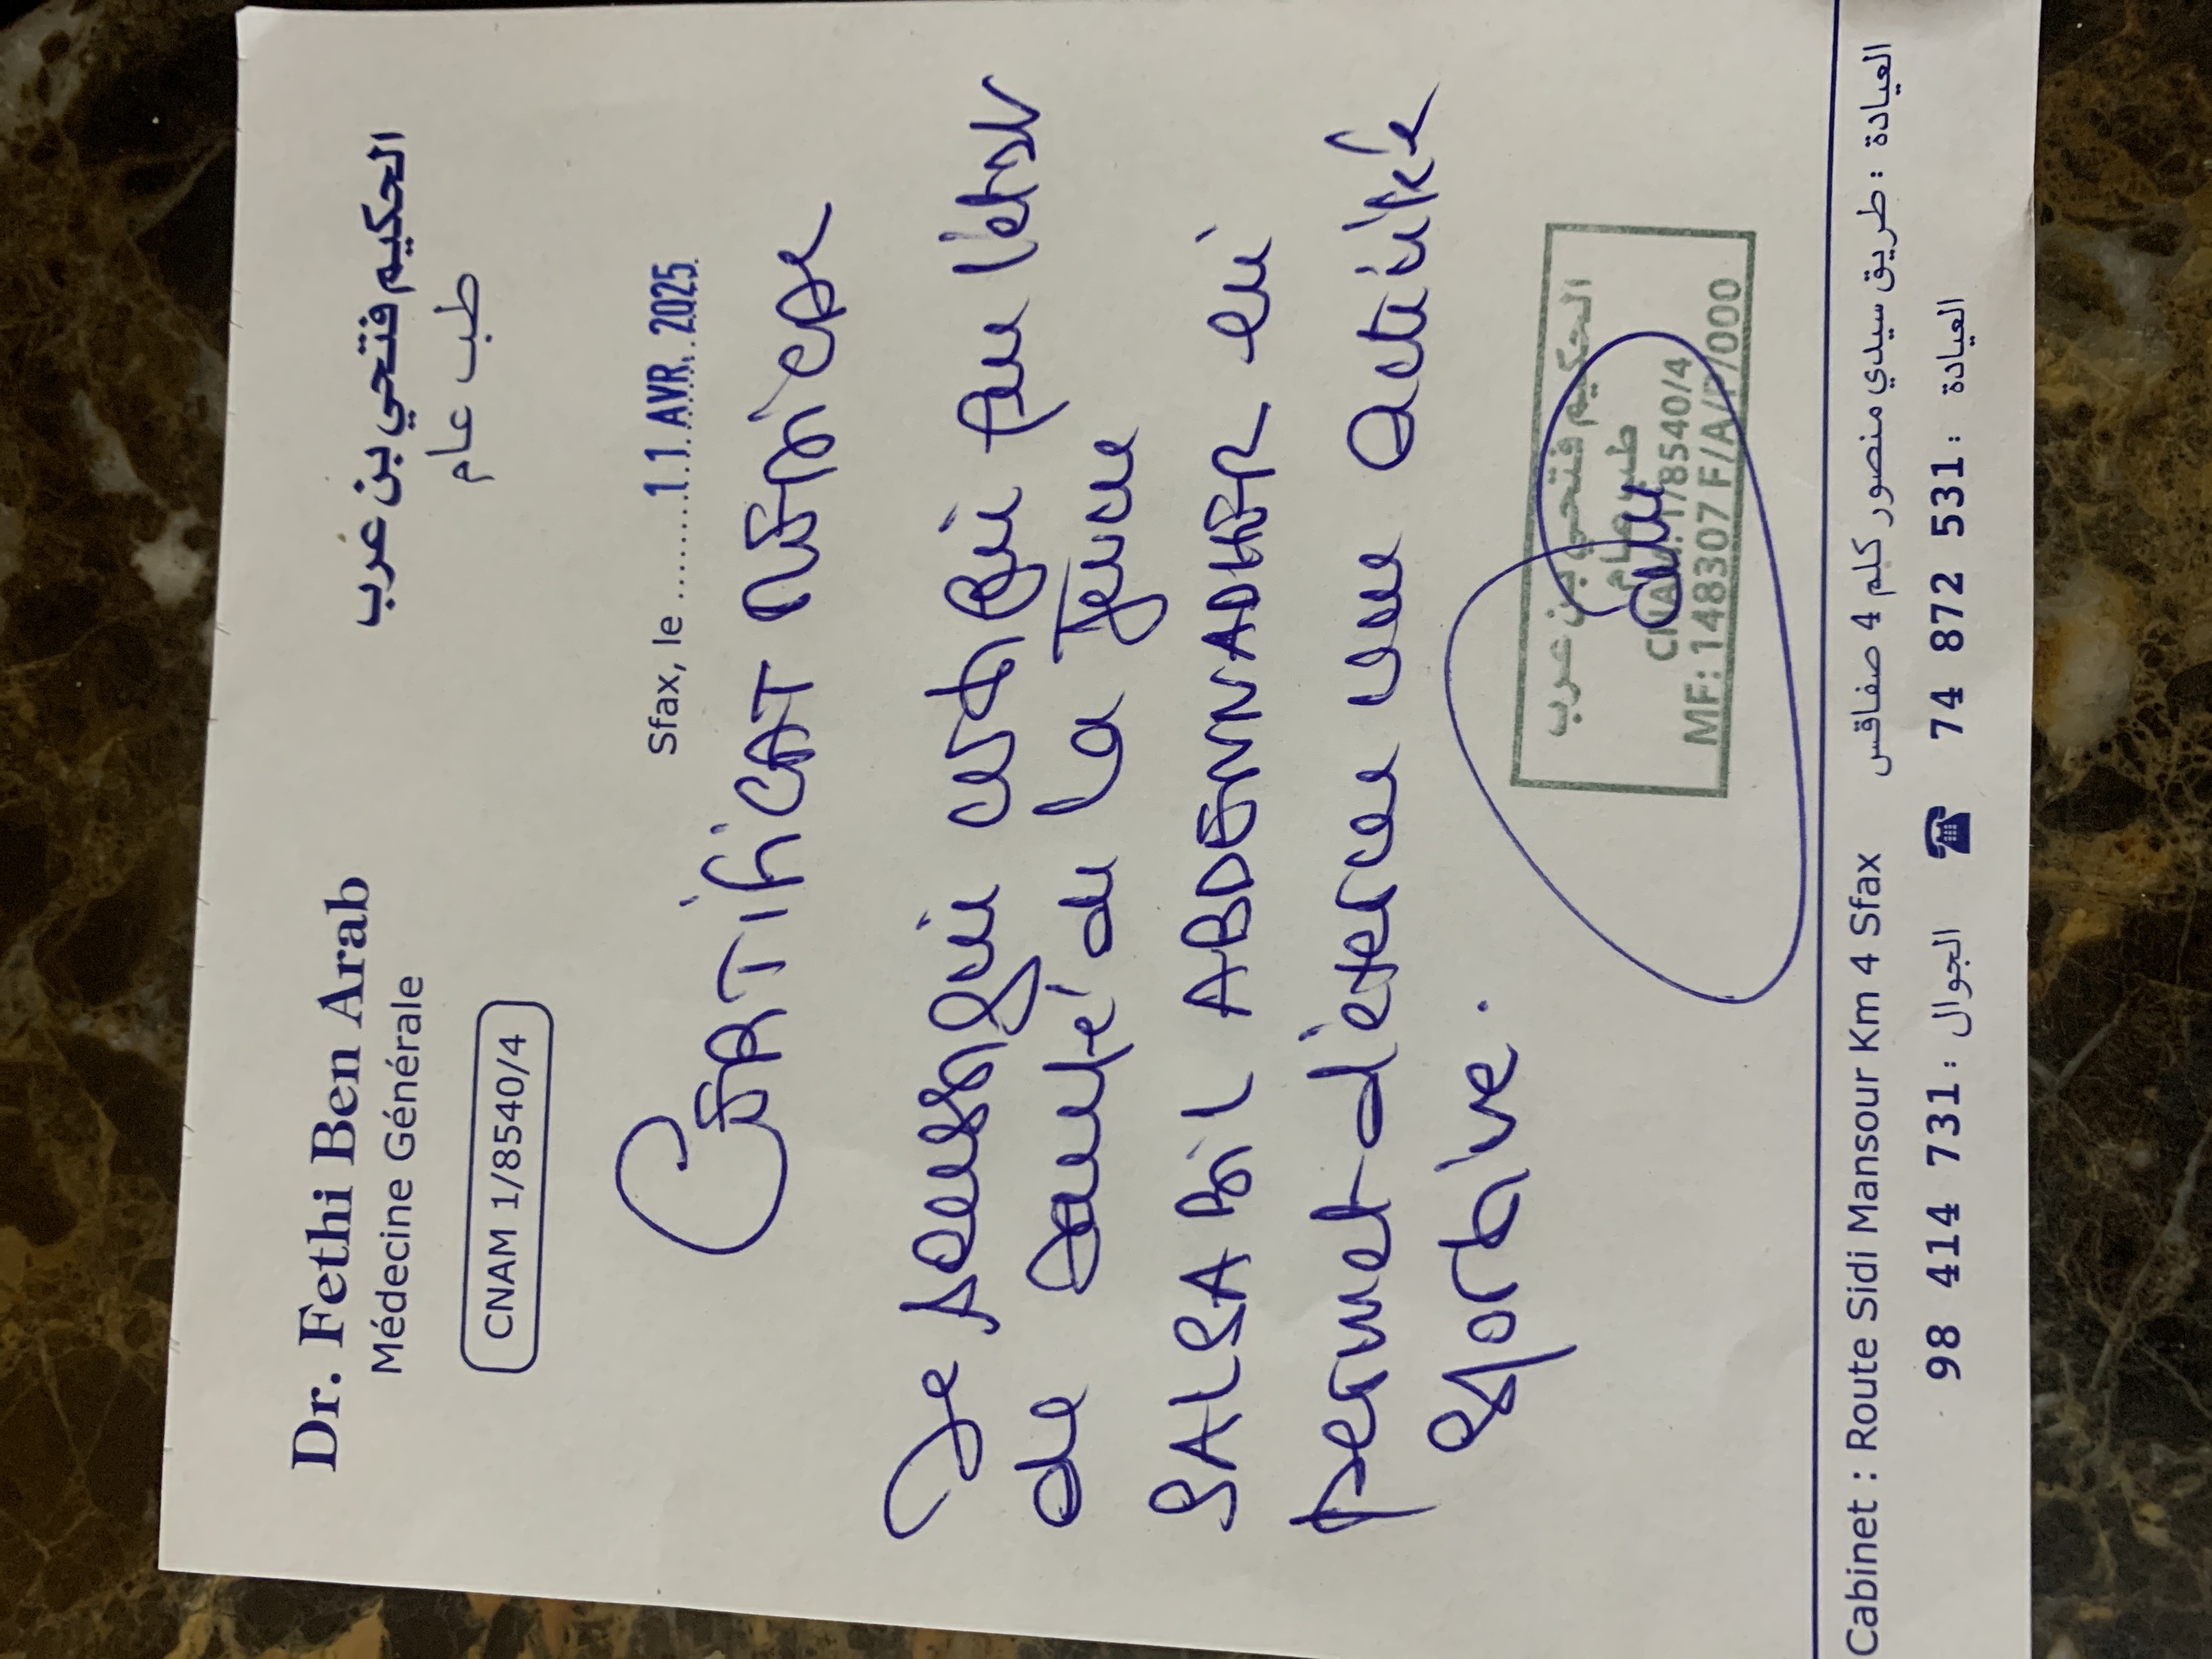 Dr. Fethi Ben Arab
Médecine Générale
CNAM 1/8540/4
الحكيم فتحي بن عرب
طب عام
Sfax, le ........ 11 AVR. 2025
CERTIFICAT MEDICAL
Je soussigné certifie que l'état
de santé de la Jeune
SALSABIL ABDENNADHER lui
permet d'exercer une activité
sportive.
الحكيم فتحي بن عرب
طب عام
CNAM: 1/8540/4
MF: 148307 F/A/P/000
Cabinet : Route Sidi Mansour Km 4 Sfax العيادة : طريق سيدي منصور كلم 4 صفاقس
98 414 731 : الجوال ☎ 74 872 531 : العيادة